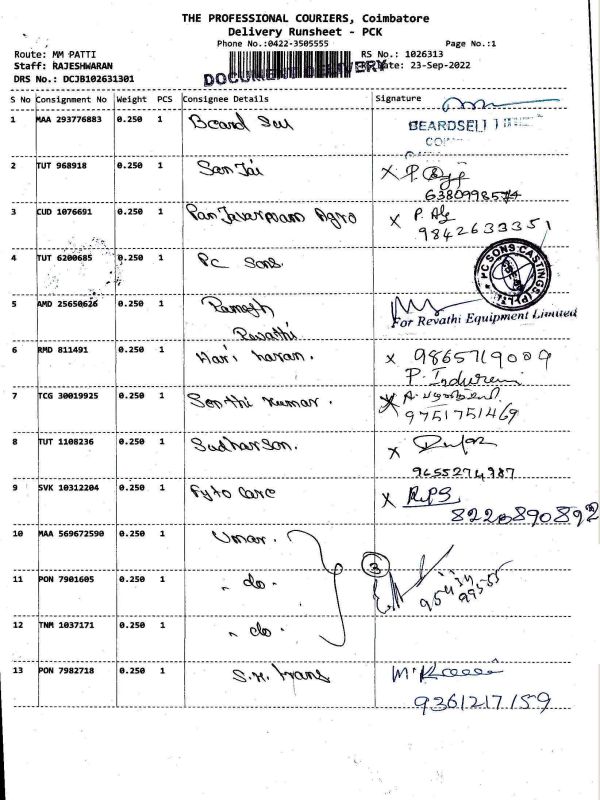 THE PROFESSIONAL COURIERS, Coimbatore
Delivery Runsheet - PCK
Phone No.:0422-3505555 Page No.:1
Route: MM PATTI RS No.: 1026313
Staff: RAJESHWARAN Date: 23-Sep-2022
DOCUMENT DELIVERY
DRS No.: DCJB102631301
S No Consignment No Weight PCS Consignee Details Signature
1 MAA 293776883 0.250 1 Beard Sell
BEARDSELL
2 TUT 968918 0.250 1 San Jai
3 CUD 1076691 0.250 1 Agro
9842633351
4 TUT 6200685 0.250 1 Pc Sons.
PC SONS CASTINGS (P) LTD
5 AMD 25650626 0.250 1 Ramesh
Revathi
For Revathi Equipment Limited
6 RMD 811491 0.250 1 Hari haran. x 9865719009
P.
7 TCG 30019925 0.250 1 Senthi kumar. x
9751751469
8 TUT 1108236 0.250 1 Sudharson. x
9655274987
9 SVK 10312204 0.250 1 Fyto Care x RPS
8220890892
10 MAA 569672590 0.250 1 Umar.
3
11 PON 7901605 0.250 1 - do -
12 TNM 1037171 0.250 1 - do -
13 PON 7982718 0.250 1 S.M. trans
9361217159